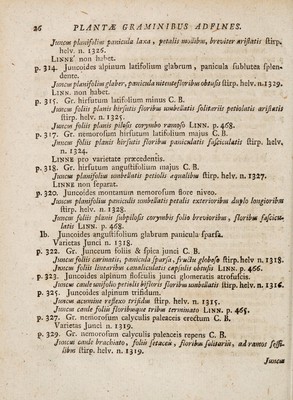 26 PLANTÆ GRAMINIBUS ADFINES.
Juncus planifolius panicula laxa, petalis mollibus, breviter aristatis stirp.
helv. n. 1326.
LINNE' non habet.
p. 314. Juncoides alpinum latifolium glabrum, panicula sublutea splen-
dente.
Juncus planifolius glaber, panicula nitente floribus obtusis stirp. helv. n. 1329.
LINN. non habet.
p. 315. Gr. hirsutum latifolium minus C. B.
Juncus foliis planis hirsutis floribus umbellatis solitariis petiolatis aristatis
stirp. helv. n. 1325.
Juncus foliis planis pilosis corymbo ramoso LINN. p. 468.
p. 317. Gr. nemorosum hirsutum latifolium majus C. B.
Juncus foliis planis hirsutis floribus paniculatis fasciculatis stirp. helv.
n. 1324.
LINNE pro varietate præcedentis.
p. 318. Gr. hirsutum angustifolium majus C. B.
Juncus planifolius umbellatus petiolis æqualibus stirp. helv. n. 1327.
LINNE non separat.
p. 320. Juncoides montanum nemorosum flore niveo.
Juncus planifolius paniculis umbellatis petalis exterioribus duplo longioribus
stirp. helv. n. 1328.
Juncus foliis planis subpilosis corymbis folio brevioribus, floribus fascicu-
latis LINN. p. 468.
Ib. Juncoides angustifolium glabrum panicula sparsa.
Varietas Junci n. 1318.
p. 322. Gr. Junceum foliis & spica junci C. B.
Juncus foliis carinatis, panicula sparsa, fructu globoso stirp. helv n. 1318.
Juncus foliis linearibus canaliculatis capsulis obtusis LINN. p. 466.
p. 323. Juncoides alpinum flosculis junci glomeratis atrofuscis.
Juncus caule unifolio petiolis bifloris floribus umbellatis stirp. helv. n. 1316.
p. 325. Juncoides alpinum trifidum.
Juncus acumine reflexo trifidus stirp. helv. n. 1315.
Juncus caule foliis floribusque tribus terminato LINN. p. 465.
p. 327. Gr. nemorosum calyculis paleaceis erectum C. B.
Varietas Junci n. 1319.
p. 329. Gr. nemorosum calyculis paleaceis repens C. B.
Juncus caule brachiato, foliis setaceis, floribus solitariis, ad ramos sessi-
libus stirp. helv. n. 1319.
Juncus